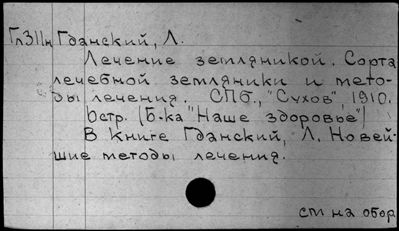 Гл311н Гданский, Л.
Лечение земляникой. Сорта
лечебной земляники и мето-
ды лечения. СПб., "Сухов", 1910.
6стр. (Б-ка "Наше здоровье")
В книге Гданский, Л. Новей-
шие методы лечения.
см на обор